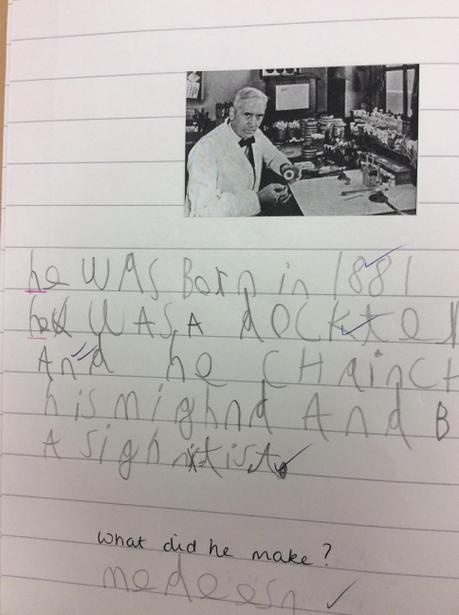 he WAS BorN in 1881
he WAS A docKter
And he CHainCH
hismighnd And B
A sighntist
what did he make?
medeesn